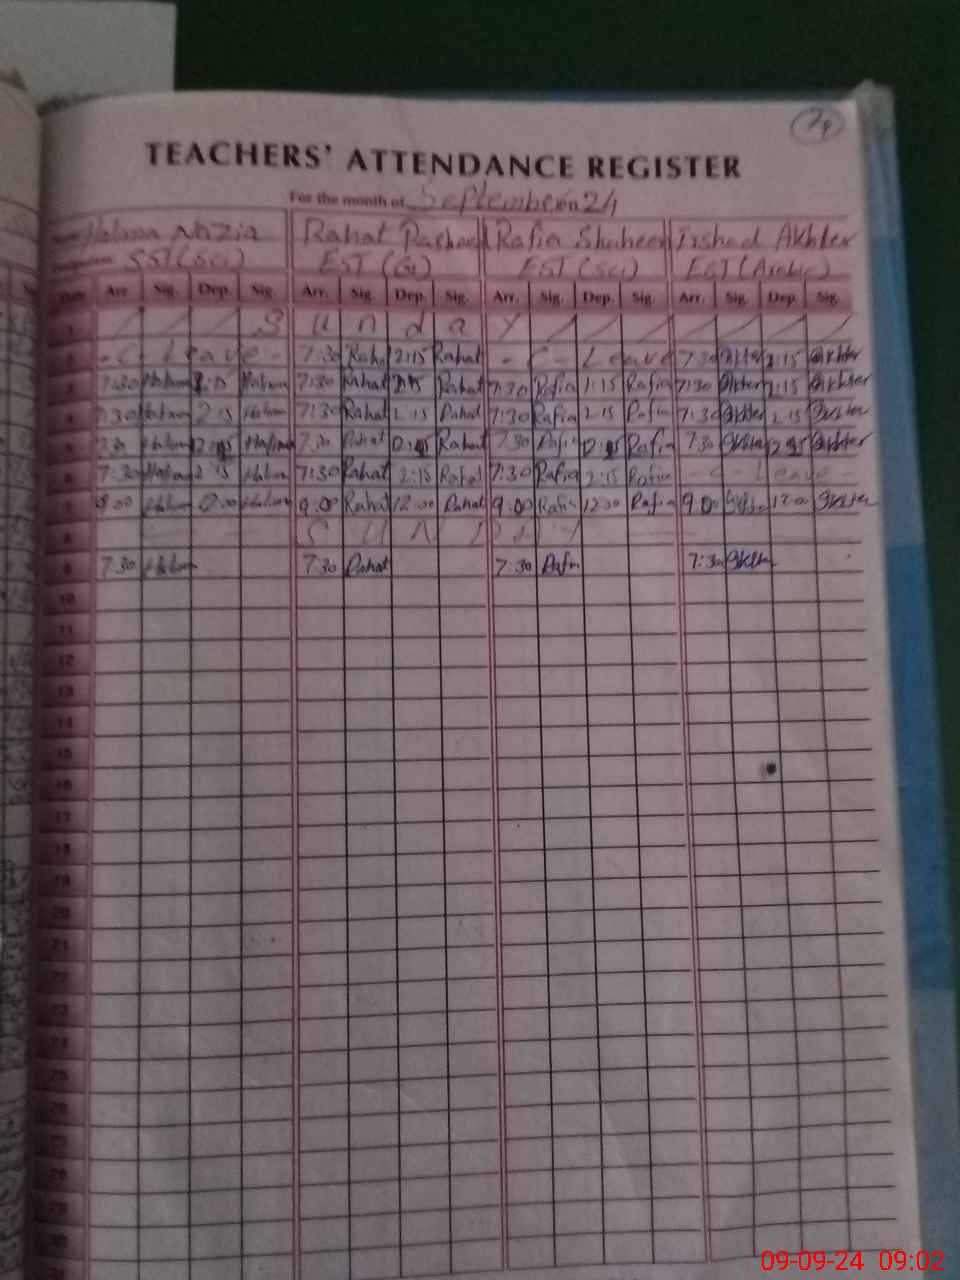 74
TEACHERS' ATTENDANCE REGISTER
For the month of September 24
Name Halima Nazia Rahat Rashad Rafia Shaheen Irshad Akhter
Designation SST (Sci) EST (G) EST (Sci) EST (Arabic)
Date Arr. Sig. Dep. Sig. Arr. Sig. Dep. Sig. Arr. Sig. Dep. Sig. Arr. Sig. Dep. Sig.
1 S u n d a y
2 - C - Leave - 7:30 Rahat 2:15 Rahat - C - Leave 7:30 Akhter 2:15 Akhter
3 7:30 Halima 2:15 Halima 7:30 Rahat 2:15 Rahat 7:30 Rafia 1:15 Rafia 7:30 Akhter 2:15 Akhter
4 7:30 Halima 2:15 Halima 7:30 Rahat 2:15 Rahat 7:30 Rafia 2:15 Rafia 7:30 Akhter 2:15 Akhter
5 7:30 Halima Halima 7:30 Rahat Rahat 7:30 Rafia Rafia 7:30 Akhter Akhter
6 7:30 Halima 2:15 Halima 7:30 Rahat 2:15 Rahat 7:30 Rafia 2:15 Rafia - C - Leave -
7 9:00 Halima 12:00 Halima 9:00 Rahat 12:00 Rahat 9:00 Rafia 12:00 Rafia 9:00 Akhter 12:00 Akhter
8 S U N D A Y
9 7:30 Halima 7:30 Rahat 7:30 Rafia 7:30 Akhter
10
11
12
13
14
15
16
17
18
19
20
21
22
23
24
25
26
27
28
29
30
09-09-24 09:02